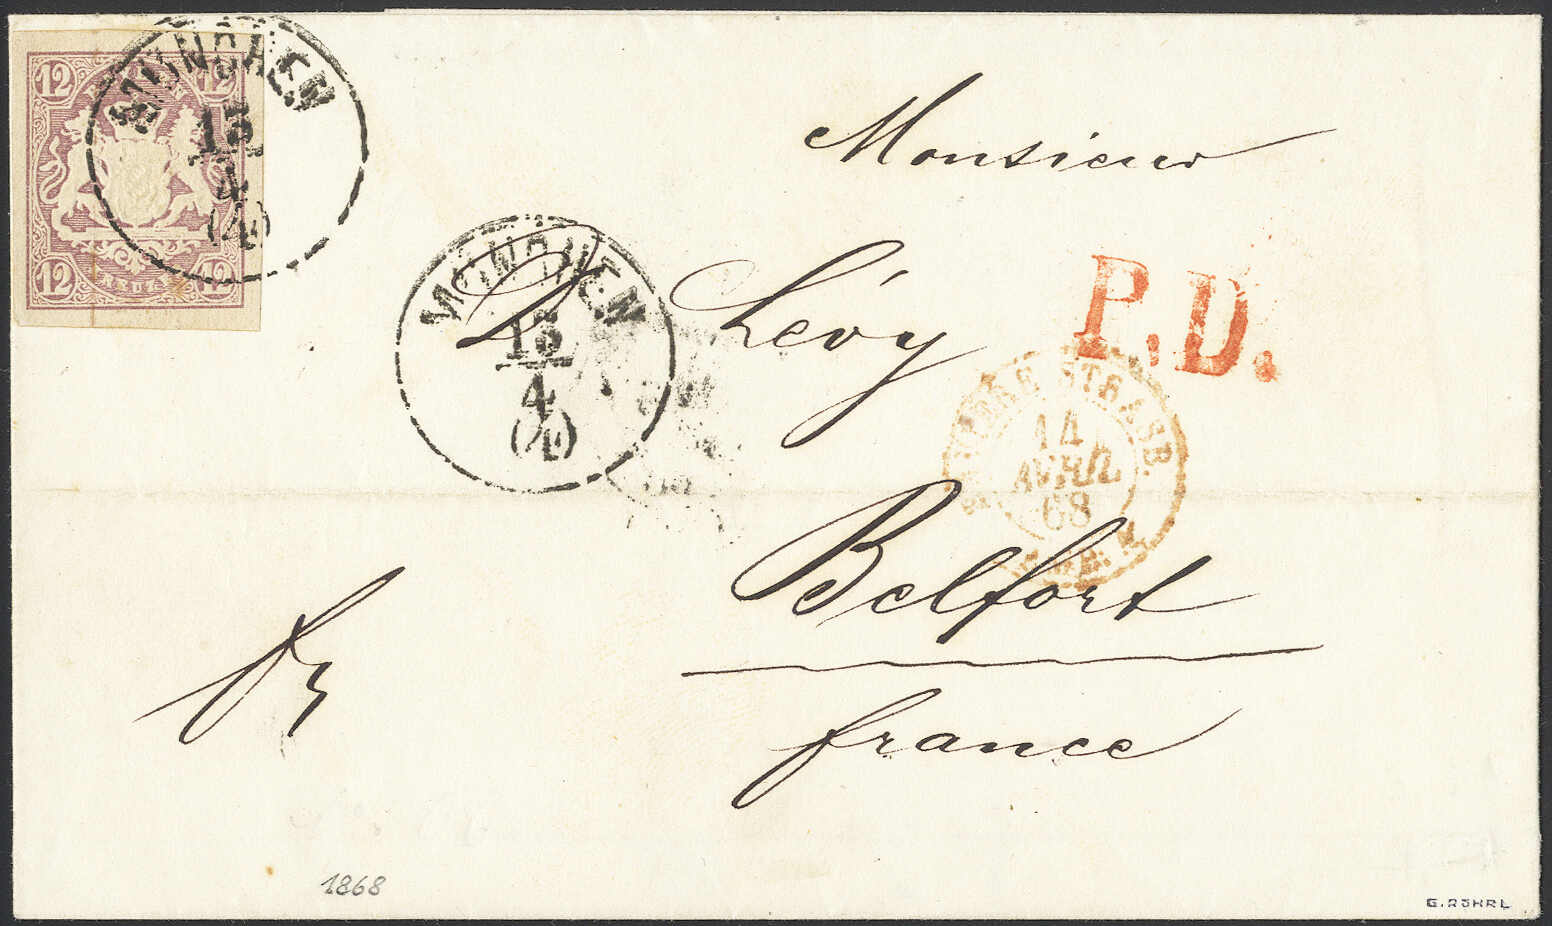 12 12
BAYERN
12 12
KREUZ.
MÜNCHEN
13
4
(4)
MÜNCHEN
13
4
(4)
Monsieur
D. Lévy
P.D.
BAVIERE STRASB.
14
AVRIL
68
Belfort
fr
france
1868
G. RÖHRL